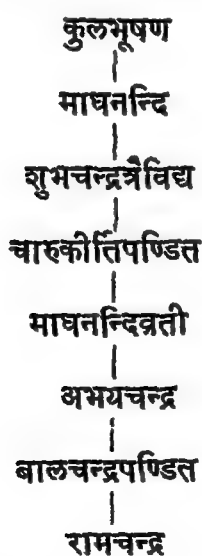 कुलभूषण
माघनन्दि
शुभचन्द्रत्रैविद्य
चारुकीर्तिपण्डित
माघनन्दिव्रती
अभयचन्द्र
बालचन्द्रपण्डित
रामचन्द्र